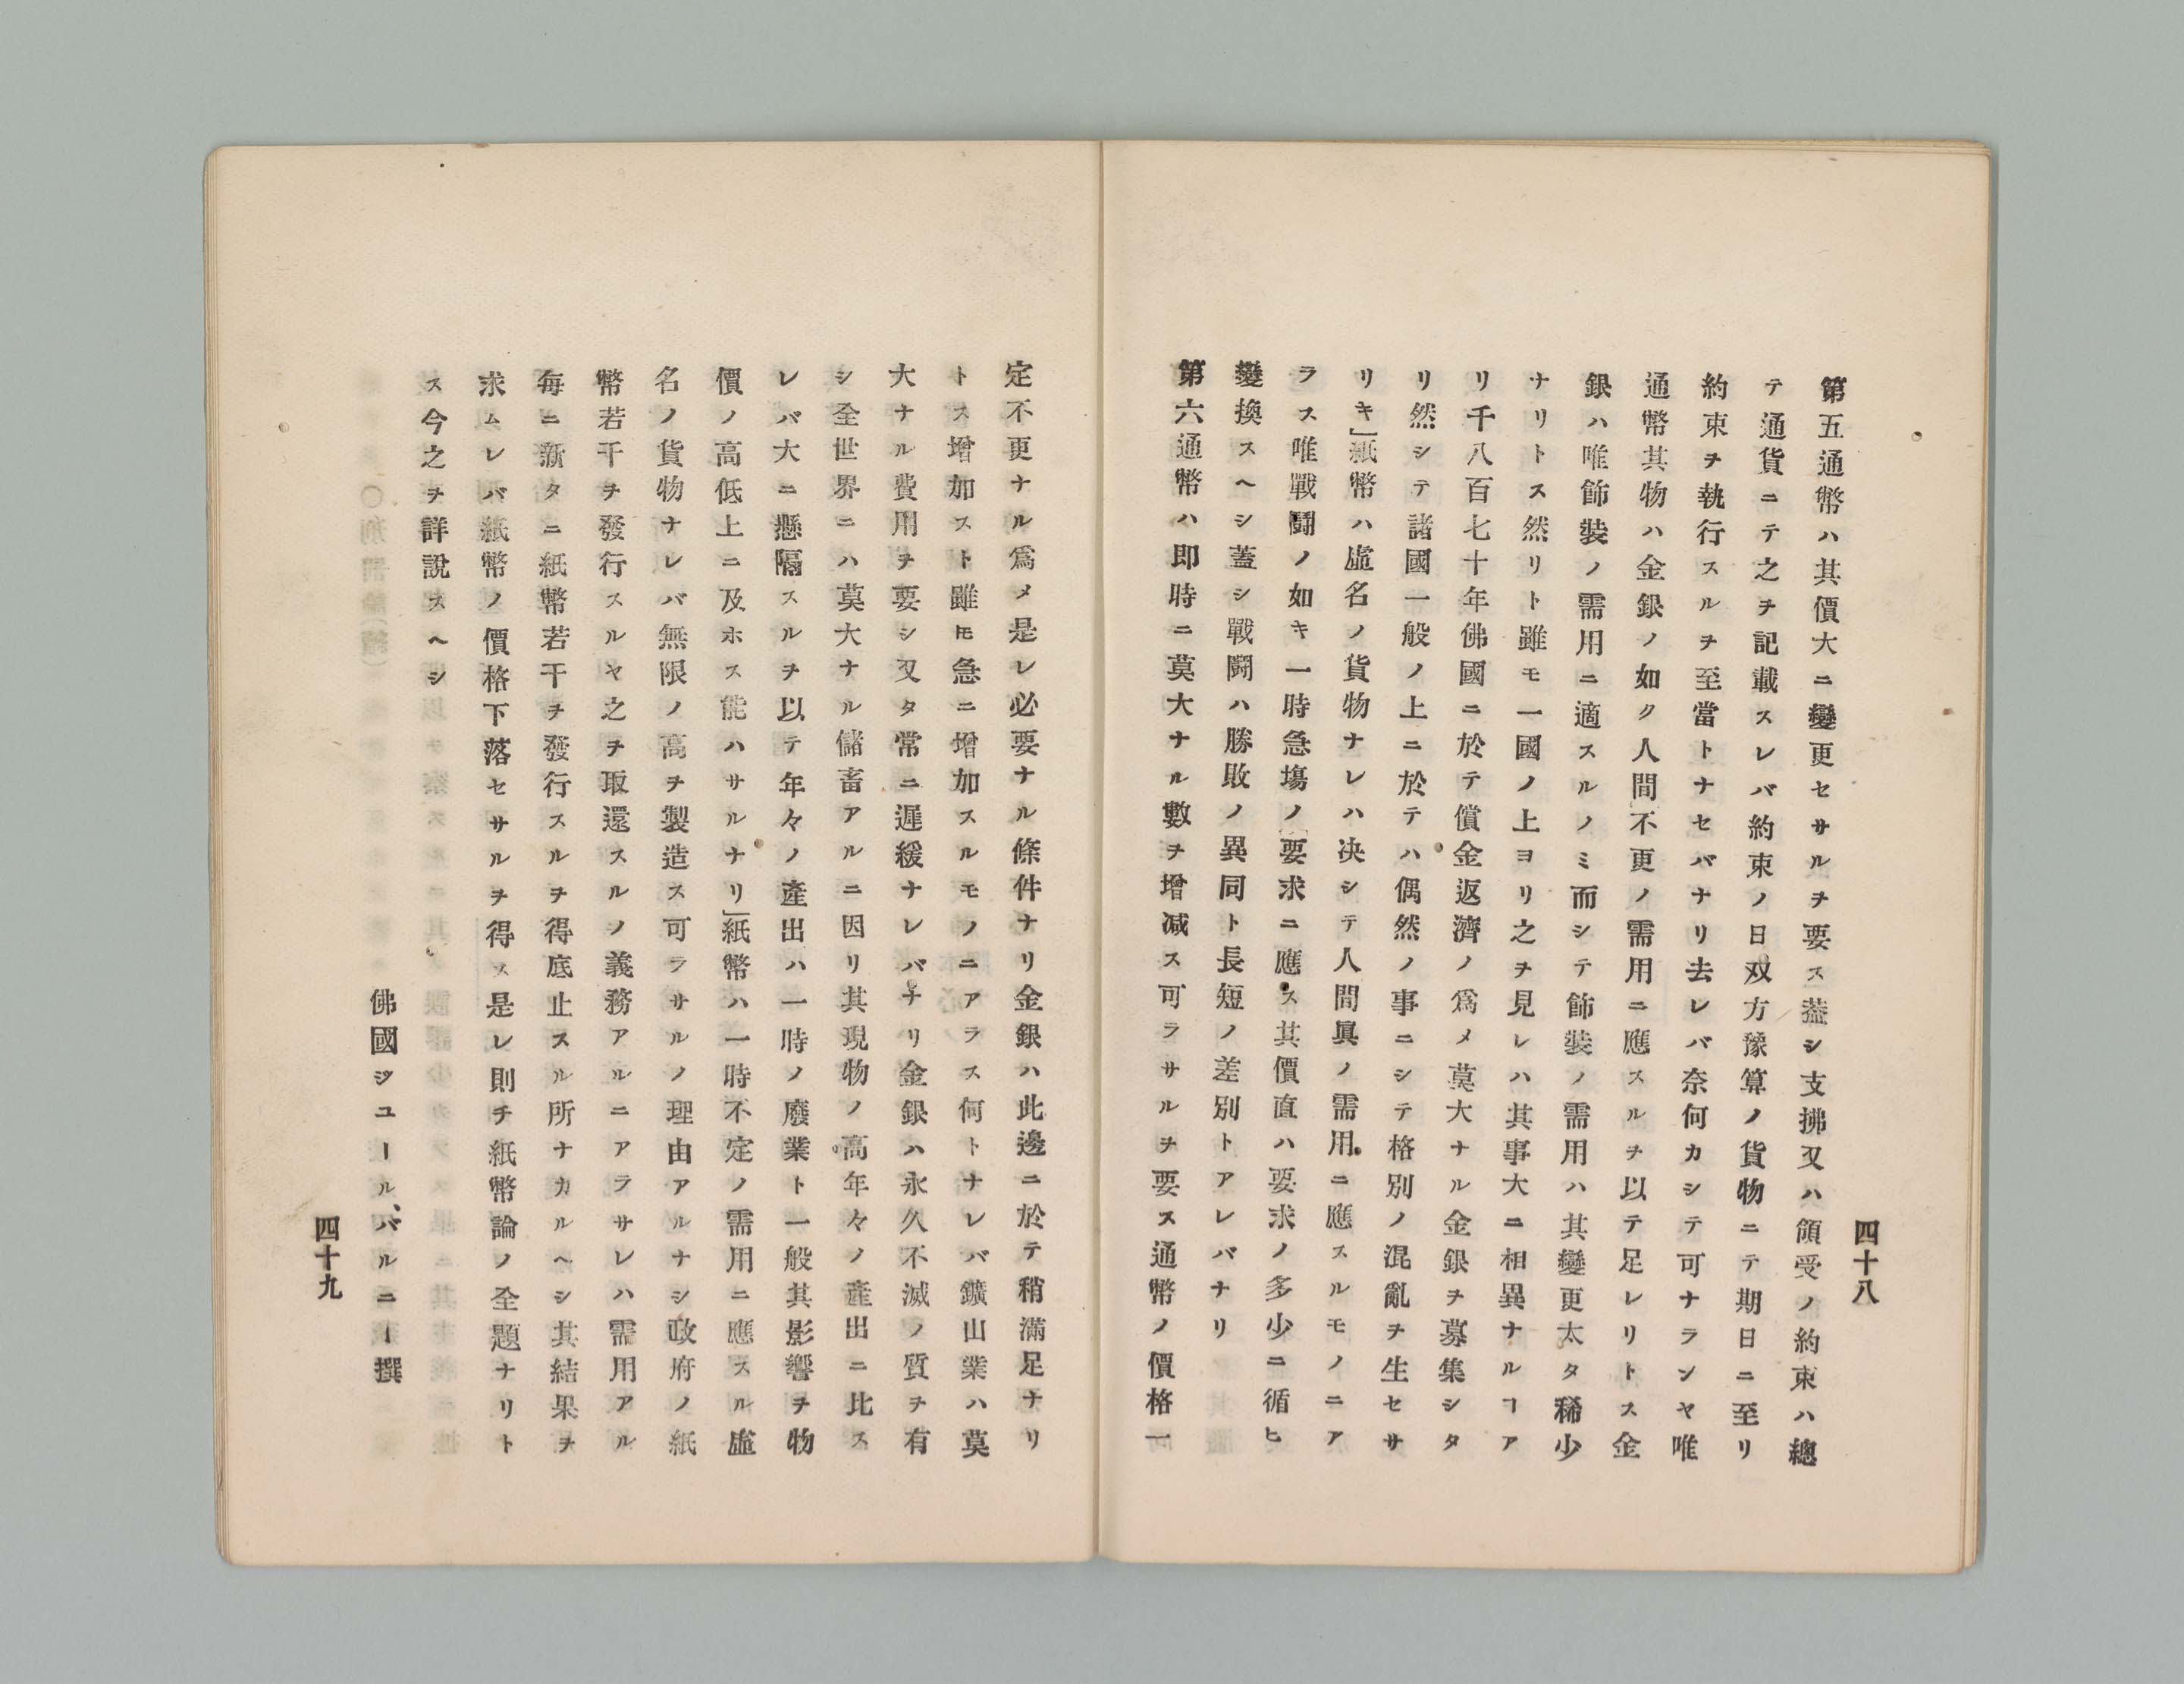 四十八
第五通幣ハ其價大ニ變更セサルヲ要ス蓋シ支拂又ハ領受ノ約束ハ總
テ通貨ニテ之ヲ記載スレバ約束ノ日双方豫算ノ貨物ニテ期日ニ至リ
約束ヲ執行スルヲ至當トナセバナリ去レバ奈何カシテ可ナランヤ唯
通幣其物ハ金銀ノ如ク人間不更ノ需用ニ應スルヲ以テ足レリトス金
銀ハ唯飾裝ノ需用ニ適スルノミ而シテ飾裝ノ需用ハ其變更太タ稀少
ナリトス然リト雖モ一國ノ上ヨリ之ヲ見レハ其事大ニ相異ナルヿア
リ千八百七十年佛國ニ於テ償金返濟ノ爲メ莫大ナル金銀ヲ募集シタ
リ然シテ諸國一般ノ上ニ於テハ偶然ノ事ニシテ格別ノ混亂ヲ生セサ
リキ」紙幣ハ虛名ノ貨物ナレハ决シテ人間眞ノ需用ニ應スルモノニア
ラス唯戰鬪ノ如キ一時急塲ノ要求ニ應ス其價直ハ要求ノ多少ニ循ヒ
變換スヘシ蓋シ戰鬪ハ勝敗ノ異同ト長短ノ差別トアレバナリ
第六通幣ハ即時ニ莫大ナル數ヲ增减ス可ラサルヲ要ス通幣ノ價格一
定不更ナル爲メ是レ必要ナル條件ナリ金銀ハ此邊ニ於テ稍滿足ナリ
トス增加スト雖𪜈急ニ增加スルモノニアラス何トナレバ鑛山業ハ莫
大ナル費用ヲ要シ又タ常ニ遲緩ナレバナリ金銀ハ永久不滅ノ質ヲ有
シ全世界ニハ莫大ナル儲畜アルニ因リ其現物ノ高年々ノ產出ニ比ス
レバ大ニ懸隔スルヲ以テ年々ノ產出ハ一時ノ廢業ト一般其影響ヲ物
價ノ高低上ニ及ホス能ハサルナリ」紙幣ハ一時不定ノ需用ニ應スル虛
名ノ貨物ナレバ無限ノ高ヲ製造ス可ラサルノ理由アルナシ政府ノ紙
幣若干ヲ發行スルヤ之ヲ取還スルノ義務アルニアラサレハ需用アル
每ニ新タニ紙幣若干ヲ發行スルヲ得底止スル所ナカルヘシ其結果ヲ
求ムレバ紙幣ノ價格下落セサルヲ得ス是レ則チ紙幣論ノ全題ナリト
ス今之ヲ詳說スヘシ
佛國ジユール、バルニー撰
四十九